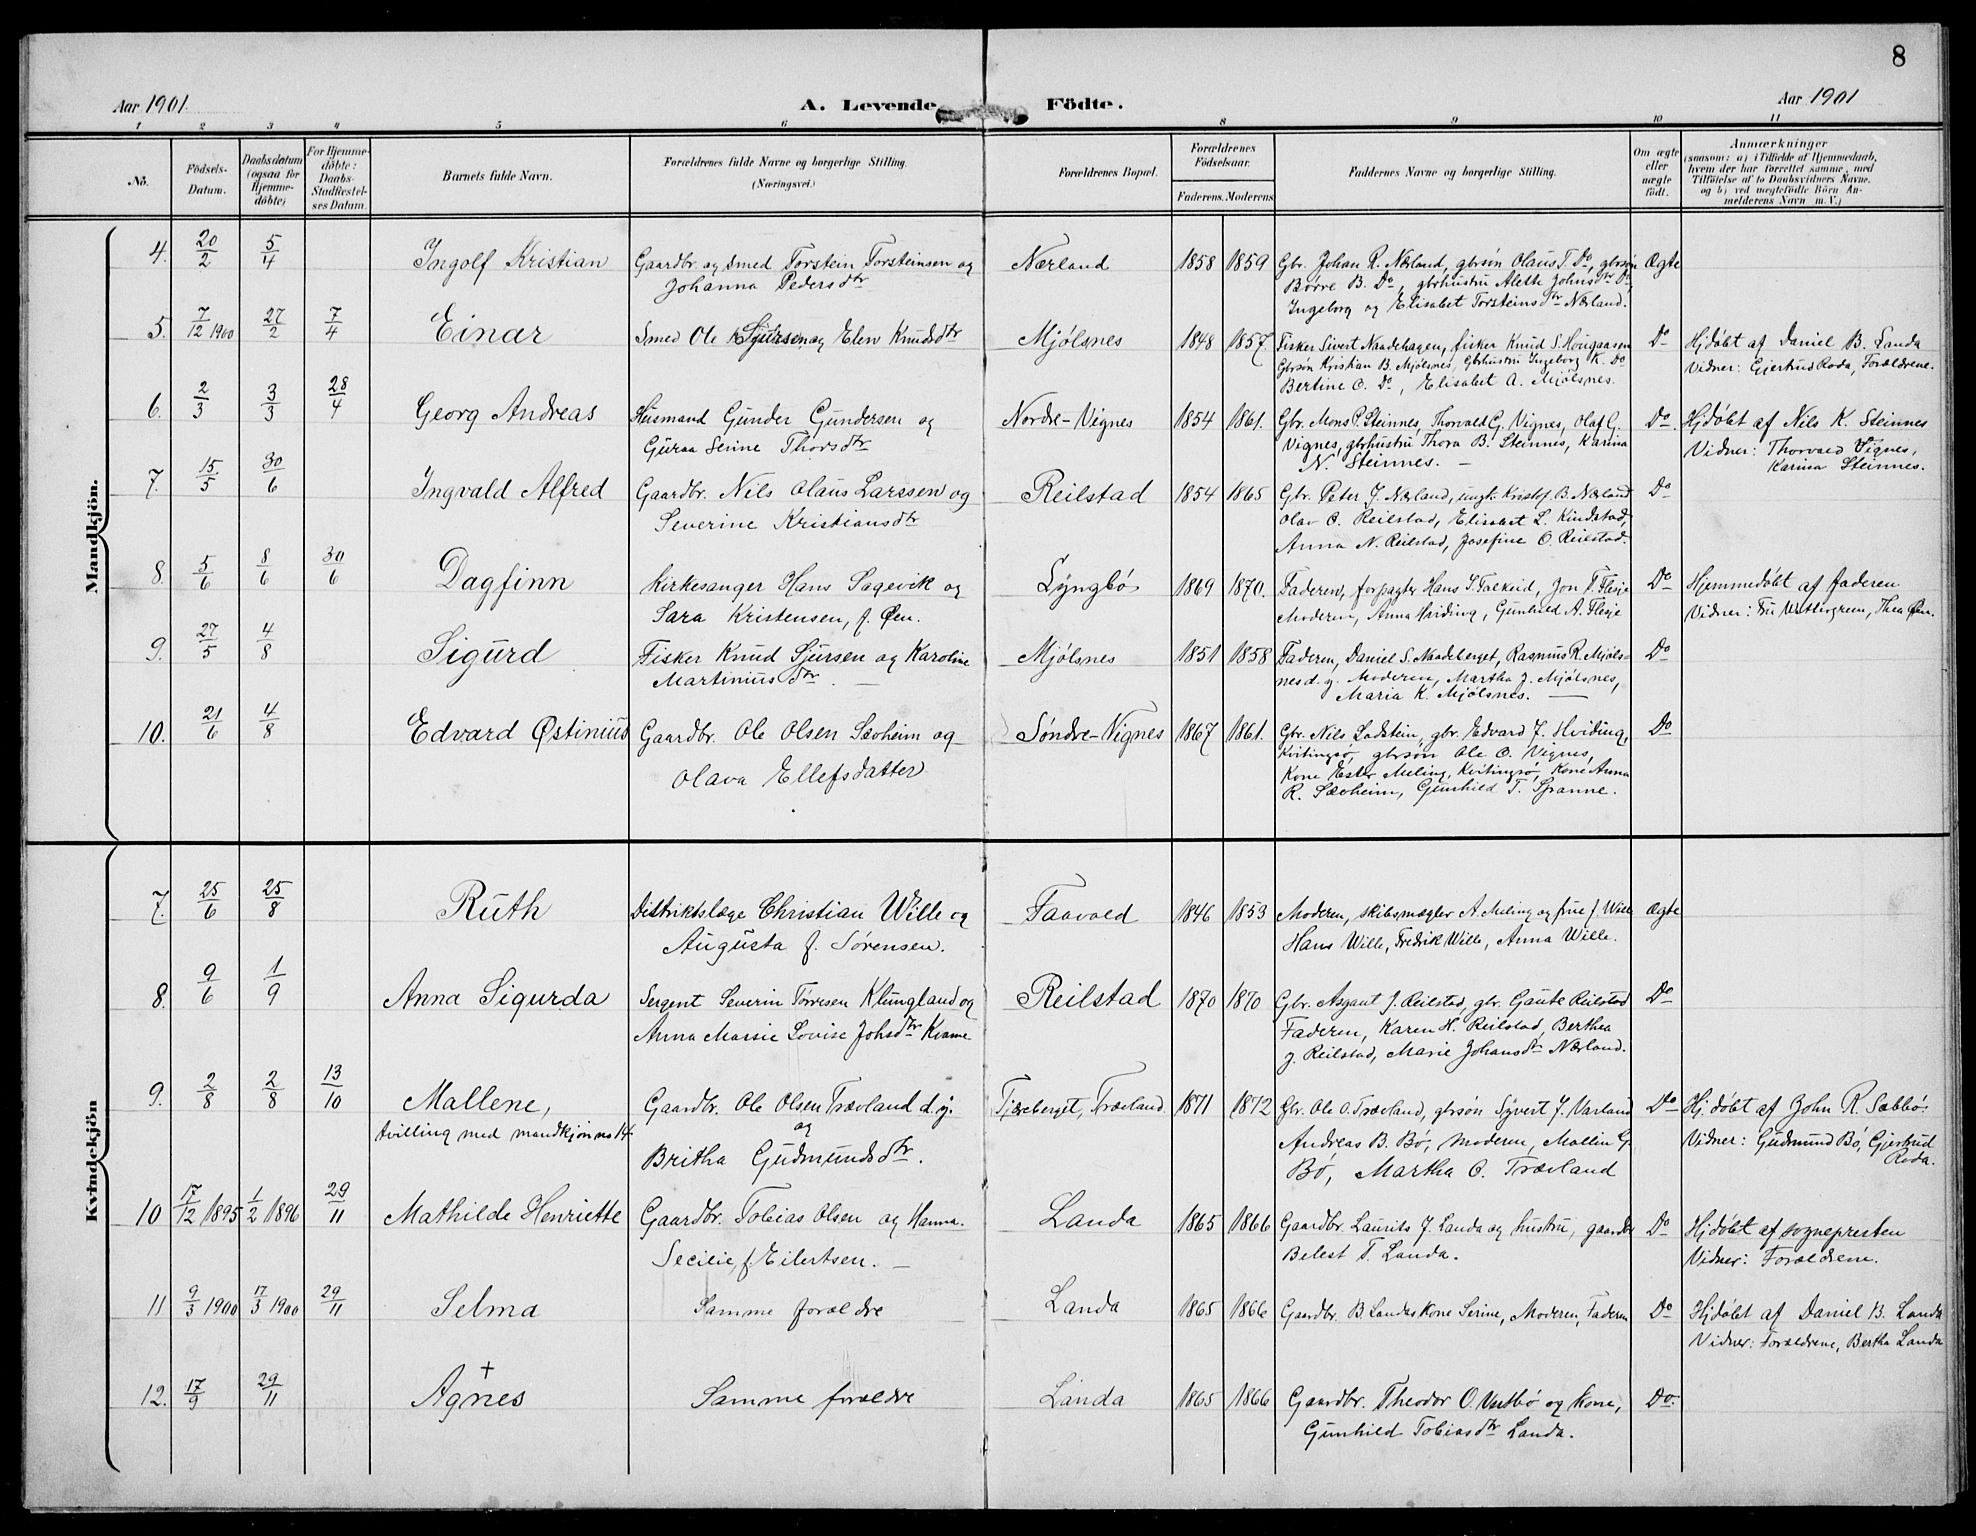 8
Aar 1901.
A. Levende Födte.
Aar 1901
1 2 3 4 5 6 8 9 10 11
No.
Födsels-Datum.
Daabsdatum (ogsaa for Hjemme-döbte)
For Hjemme-döbte: Daabs-Stadfæstel-ses Datum.
Barnets fulde Navn.
Forældrenes fulde Navne og borgerlige Stilling.
(Næringsvei.)
Forældrenes Bopæl.
Forældrenes Födselsaar.
Faderens. Moderens
Faddernes Navne og borgerlige Stilling.
Om ægte eller uægte födt.
Anmærkninger
(saasom: a) i Tilfælde af Hjemmedaab,
hvem der har forrettet samme, med
Tilföielse af to Daabsvidners Navne,
og b) ved uægtefödte Börn An-
melderens Navn m. V.)
Mandkjön.
4. 20/2 5/4 Ingolf Kristian Gaardbr. og Smed Torstein Torsteinsen og Nærland 1858 1859 Gbr. Johan R. Nærland, gbrsøn Olaus T. Do, gbrsøn Ægte
Johanna Pedersdtr Børre B. Do, gbrhustru Alette Johnsdtr Do,
Ingeborg og Elisabet Torsteinsdtr Nærland.
5. 7/12 1900 27/2 7/4 Einar Smed Ole Sjursen og Elen Knudsdtr Mjølsnes 1848 1857. Fisker Sivert Naadehagen, fisker Knud S. Hougaasen Do Hjdøbt af Daniel B. Landa
Gbrsøn Kristian B. Mjølsnes, Gbrhustru Ingeborg K. Do Vidner: Gjertrud Roda, Forældrene.
Bertine O. Do, Elisabet A. Mjølsnes.
6. 2/3 3/3 28/4 Georg Andreas Husmand Gunder Gundersen og Nordre-Vignes 1854 1861. Gbr. Mons P. Steinnes, Thorvald G. Vignes, Olaf G. Do. Hjdøbt af Nils K. Steinnes
Guraa Serine Thorsdtr Vignes, gbrhustru Thora B. Steinnes, Karina Vidner: Thorvald Vignes,
N. Steinnes. — Karina Steinnes.
7. 15/5 30/6 Ingvald Alfred Gaardbr. Nils Olaus Larssen og Reilstad 1854 1865 Gbr. Peter J. Nærland, ungk. Kristof. B. Nærland Do
Severine Kristiansdtr Olav O. Reilstad, Elisabet L. Kindstad,
Anna N. Reilstad, Josefine O. Reilstad.
8. 5/6 8/6 30/6 Dagfinn Kirkesanger Hans Sagevik og Lyngbø 1869 1870. Faderen, forpagter Hans S. Falkeid, Jon T. Flesje Do Hjemmedøbt af Faderen
Sara Kristensen, f. Øen. Moderen, Anna Hviding, Gunhild A. Flesje Vidner: Fru Wettergreen, Thea Øen.
9. 27/5 4/8 Sigurd Fisker Knud Sjursen og Karoline Mjølsnes 1851 1858 Faderen, Daniel S. Naadeberget, Rasmus R. Mjøls- Do
Martiniusdtr. — nes d. y. Moderen, Martha J. Mjølsnes,
Maria K. Mjølsnes. —
10. 21/6 4/8 Edvard Østinius Gaardbr. Ole Olsen Sæheim og Søndre-Vignes 1867 1861. Gbr. Nils Ladstein, gbr. Edvard J. Hviding, Do
Olava Ellefsdatter Kvitingsø, gbrsøn Ole O. Vignes,
Kone Ester Meling, Kvitingsø, Kone Anna
R. Sæheim, Gunhild T. Spanne.
Kvindekjön
7. 25/6 25/8 Ruth Distriktslæge Christian Wille og Faavold 1846 1853 Moderen, skibsmægler A. Meling og frue f. Wille Ægte
Augusta f. Sørensen. Hans Wille, Fredrik Wille, Anna Wille.
8. 9/6 1/9 Anna Sigurda Sergent Severin Tørresen Klungland og Reilstad 1870 1870 Gbr. Asgaut J. Reilstad, gbr. Gaute Reilstad Do
Anna Massie Lovise Johsdtr Kvame Faderen, Karen H. Reilstad, Berthea
J. Reilstad, Marie Johansdtr Nærland.
9. 2/8 2/8 13/10 Mallene, Gaardbr. Ole Olsen Træland d. y. Tjæreberget, Træland 1871 1872 Gbr. Ole O. Træland, gbrsøn Syvert J. Varland Do Hj. døbt af John R. Sæbbø.
tvilling med mandkjøn no 14 og Andreas B. Bø, Moderen, Mallin G. Vidner: Gudmund Bø, Gjertrud
Britha Gudmundsdtr. Bø, Martha O. Træland Roda.
10 17/12 1895 1/2 1896 29/11 Mathilde Henriette Gaardbr. Tobias Olsen og Hanna Landa 1865 1866 Gaardbr. Laurits J. Landa og hustru, gaardbr Do Hjdøbt af sognepresten
Secilie, f. Eilertsen. — Belest T. Landa. Vidner: Forældrene.
11 9/3 1900 17/3 1900 29/11 Selma Samme forældre Landa 1865 1866 Gaardbr. B. Landas Kone Serine, Moderen, Faderen Do Hjdøbt af Daniel B. Landa
Vidner: Forældrene, Bertha Landa
12. 17/9 29/11 Agnes + Samme forældre Landa 1865 1866 Gaardbr. Theodor O. Vestbø og Kone, Do.
Gunhild Tobiasdtr Landa.